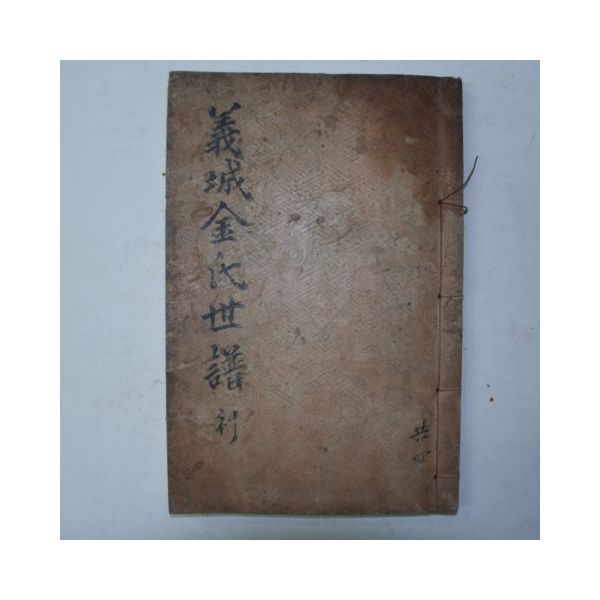 義城金氏世譜 利
共四